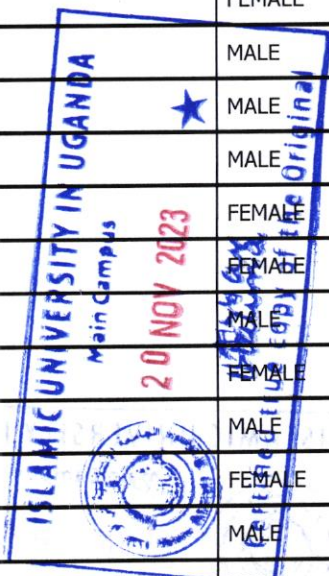 FEMALE
MALE
MALE
MALE
FEMALE
FEMALE
MALE
FEMALE
MALE
FEMALE
MALE
ISLAMIC UNIVERSITY IN UGANDA
Main Campus
20 NOV 2023
Copy of the Original